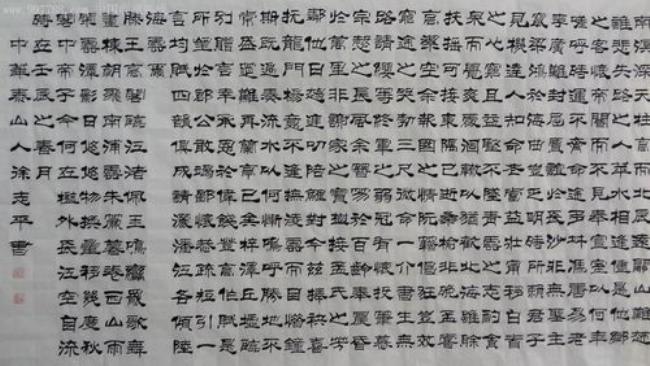 南溟深天柱高而北辰遠關山難越
誰悲失路之人萍水相逢盡是他鄉
之客懷帝閽而不見奉宣室以何年
嗟呼時運不齊命途多舛馮唐易老
李廣難封屈賈誼於長沙非無聖主
竄梁鴻於海曲豈乏明時所賴君子
見機達人知命老當益壯寧移白首
之心窮且益堅不墜青雲之志酌貪
泉而覺爽處涸轍以猶歡北海雖賒
扶搖可接東隅已逝桑榆非晚孟嘗
高潔空余報國之情阮籍猖狂豈效
窮途之哭勃三尺微命一介書生無
路請纓等終軍之弱冠有懷投筆慕
宗愨之長風舍簪笏於百齡奉晨昏
於萬里非謝家之寶樹接孟氏之芳
鄰他日趨庭叨陪鯉對今茲捧袂喜
托龍門楊意不逢撫凌雲而自惜鐘
期既遇奏流水以何慚嗚呼勝地不
常盛筵難再蘭亭已矣梓澤丘墟臨
別贈言幸承恩於偉餞登高作賦是
所望於群公敢竭鄙懷恭疏短引一
言均賦四韻俱成請灑潘江各傾陸
海雲爾
滕王高閣臨江渚佩玉鳴鸞罷歌舞
畫棟朝飛南浦雲朱簾暮卷西山雨
閑雲潭影日悠悠物換星移幾度秋
閣中帝子今何在檻外長江空自流
時在壬辰之春月
中華泰山人徐志平書